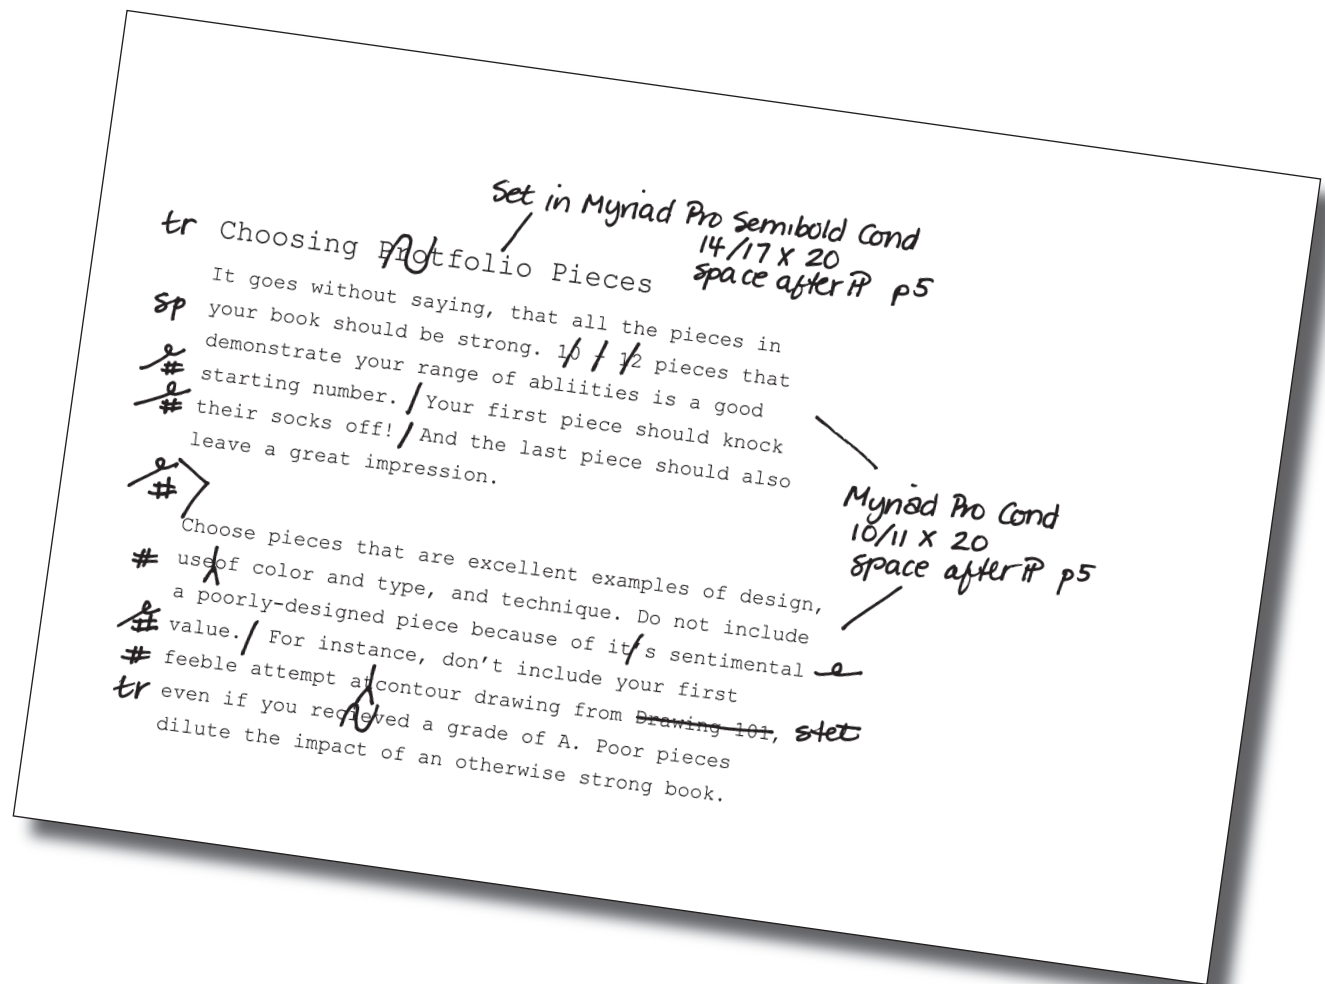 Set in Myriad Pro Semibold Cond
14/17 x 20
space after ¶ p5
tr Choosing Protfolio Pieces
It goes without saying, that all the pieces in
sp your book should be strong. 10 - 12 pieces that
demonstrate your range of abliities is a good
# starting number. / Your first piece should knock
# their socks off! / And the last piece should also
leave a great impression.
#
Myriad Pro Cond
10/11 x 20
space after ¶ p5
Choose pieces that are excellent examples of design,
# useof color and type, and technique. Do not include
a poorly-designed piece because of it's sentimental
# value. / For instance, don't include your first
# feeble attempt atcontour drawing from Drawing 101, stet
tr even if you recieved a grade of A. Poor pieces
dilute the impact of an otherwise strong book.